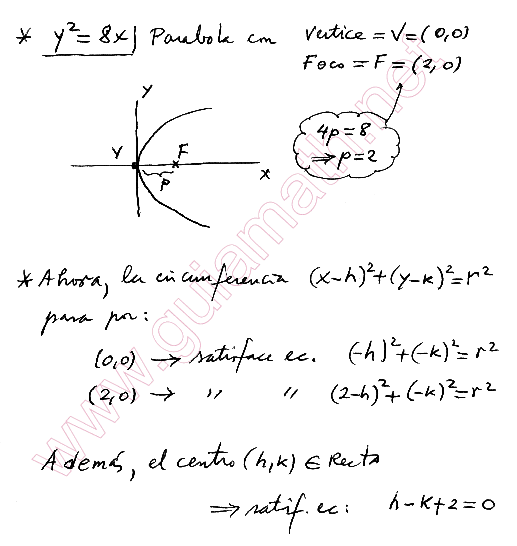 * y²=8x | Parabola con Vertice = V=(0,0)
Foco = F = (2,0)
4p=8
⇒p=2
y
V F
p
x
* Ahora, la circunferencia (x-h)²+(y-k)²=r²
pasa por:
(0,0) → satisface ec. (-h)²+(-k)²=r²
(2,0) → " " (2-h)²+(-k)²=r²
Además, el centro (h,k) ∈ Recta
⇒ satisf. ec: h-k+2=0
www.guiamath.net